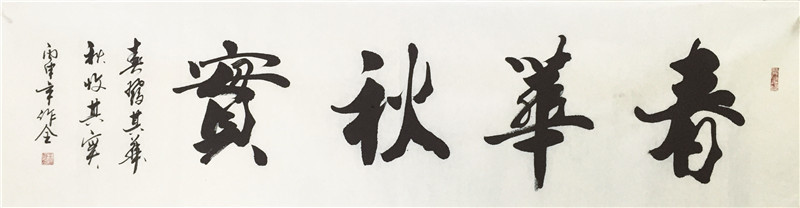 春華秋實
春發其華
秋收其實
丙申年作全